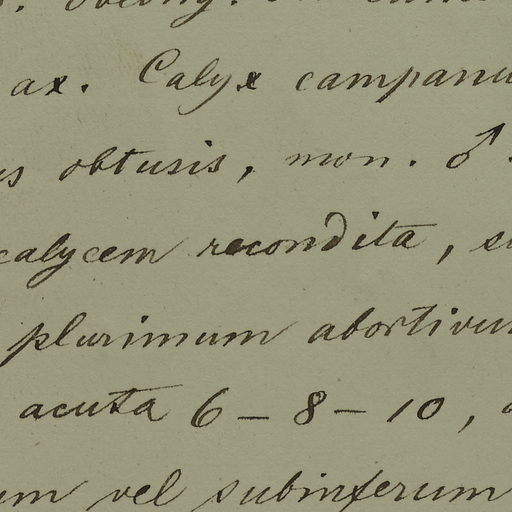 ax. Calyx campanu
us obtusis, mon. ♂.
calycem recondita, su
plurimum abortivum
acuta 6–8–10,
um vel subinferum